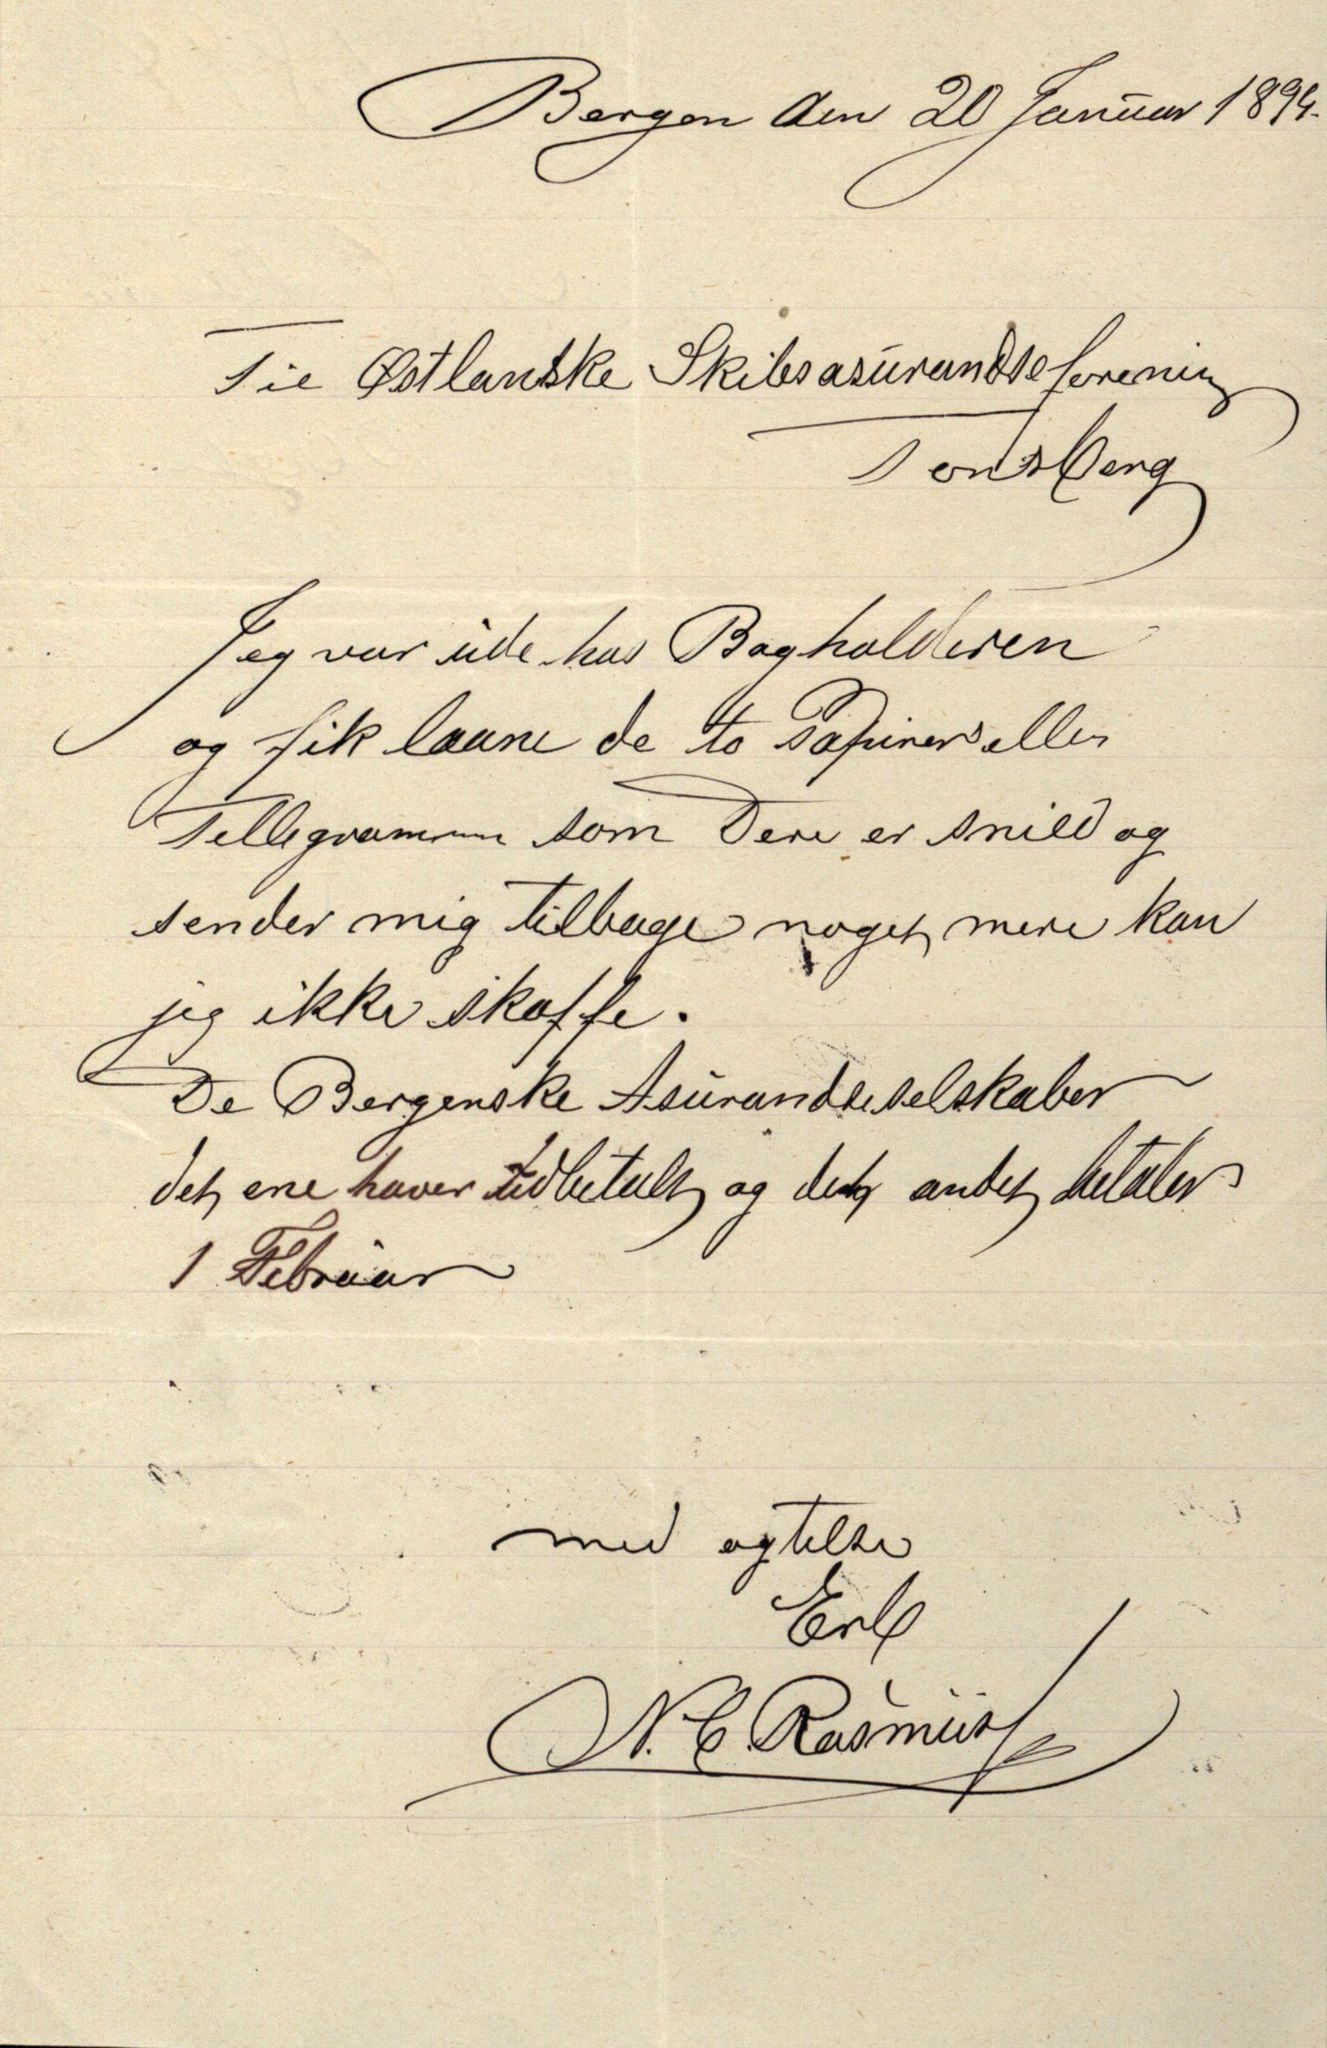 Bergen den 20 Januar 1894.
Til Østlanske Skibsasurandseforening
Tønsberg
Jeg var ude hos Bagholderen
og fik laane de to Papirer eller
Tellegrammer som Dere er snild og
sender mig tilbage noget mere kan
jeg ikke skaffe.
De Bergenske Asurandseselskaber
det ene haver udbetalt og det andet betaler
1 Februar
med agtelse
Erb
N. C. Rasmus